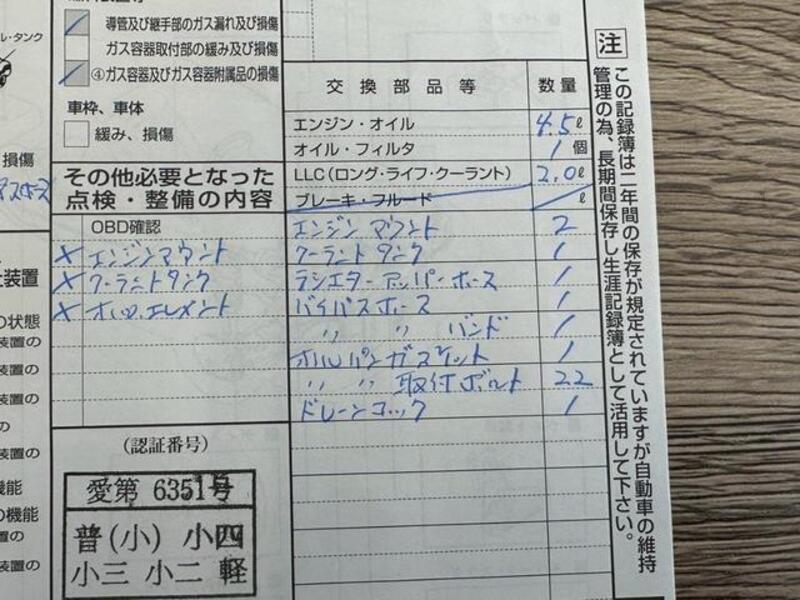 導管及び継手部のガス漏れ及び損傷
ガス容器取付部の緩み及び損傷
④ガス容器及びガス容器附属品の損傷
車枠、車体
緩み、損傷
ル・タンク
損傷
その他必要となった
点検・整備の内容
OBD確認
× エンジンマウント
× クーラントタンク
× オイルエレメント
交換部品等 数量
エンジン・オイル 4.5ℓ
オイル・フィルタ 1個
LLC(ロング・ライフ・クーラント) 2.0ℓ
ブレーキ・フルード ℓ
エンジンマウント 2
クーラントタンク 1
ラジエターアッパーホース 1
バイパスホース 1
〃 〃 バンド 1
オイルパンガスケット 1
〃 〃 取付ボルト 22
ドレーンコック 1
装置
の状態
装置の
装置の
装置の
装置の
機能
の機能
装置の
(認証番号)
愛第 6351号
普(小) 小四
小三 小二 軽
注
この記録簿は二年間の保存が規定されていますが自動車の維持
管理の為、長期間保存し生涯記録簿として活用して下さい。